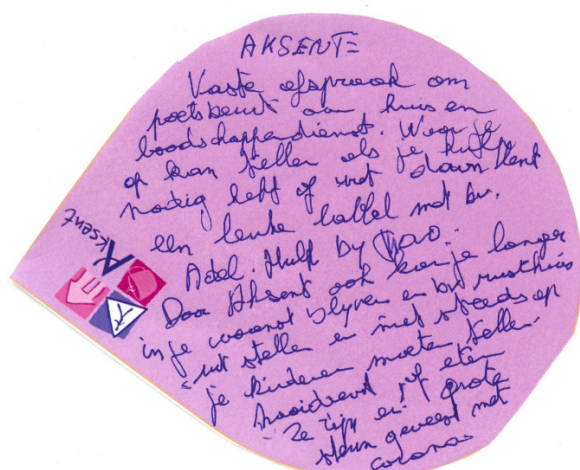 AKSENT
Vaste afspraak om
poetsbeurt aan huis en
boodschappendienst. Waar je
op kan tellen als je hulp
nodig hebt of wat down bent
een leuke babbel met bv.
Adel. Hulp by
Door Aksent ook kan je langer
in je woonst blyven en bv rusthuis
uit stellen en niet steeds op
je kinderen moeten tellen.
of eten
Ze zijn een grote
steun geweest met
corona
Aksent